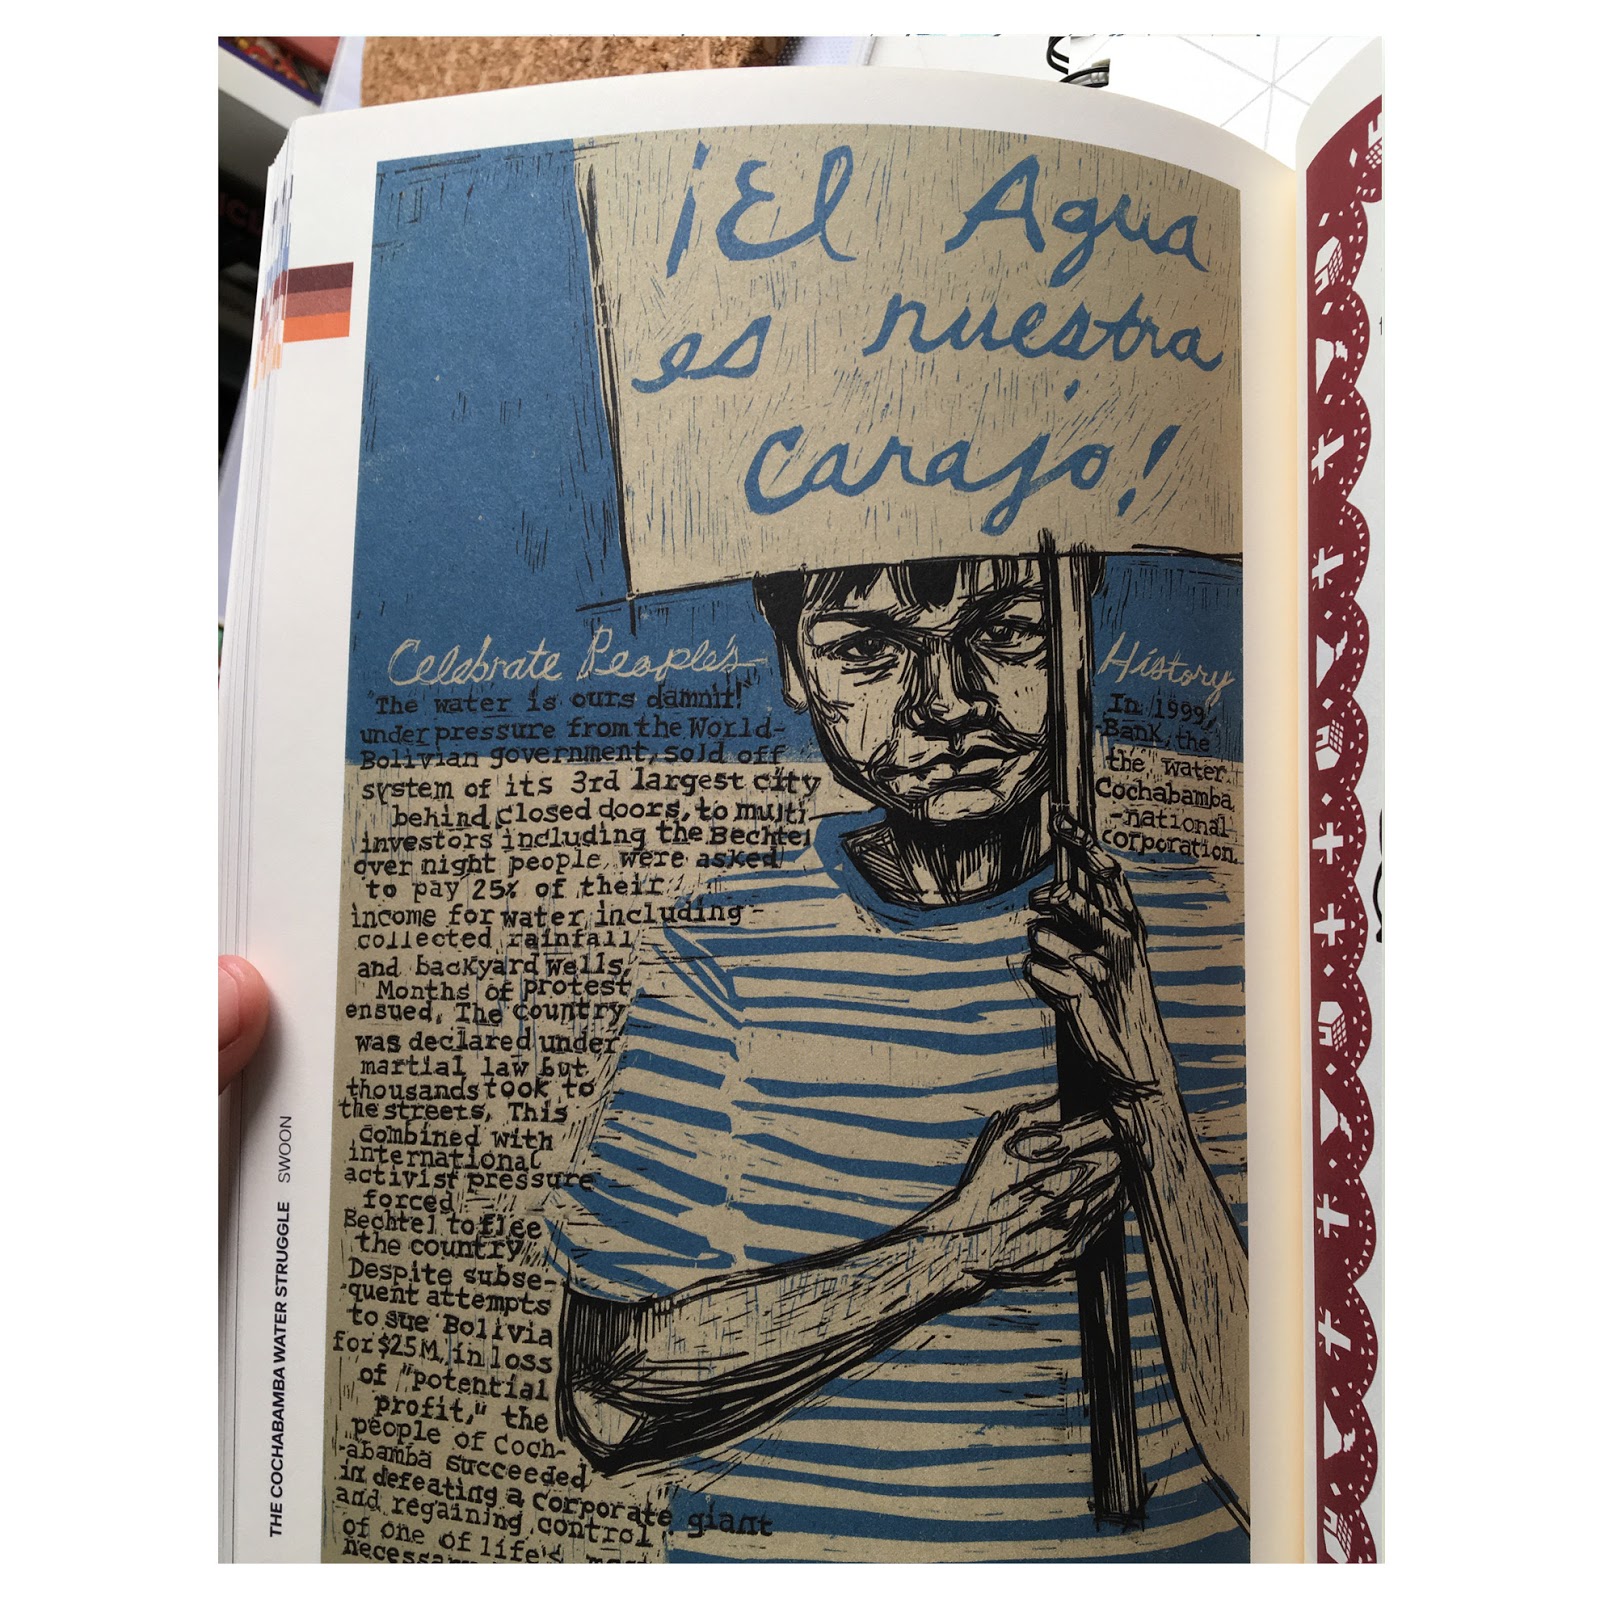 ¡El Agua
es nuestra
carajo!
Celebrate People's History
"The water is ours damnit!" In 1999,
under pressure from the World- Bank, the
Bolivian government, sold off the water
system of its 3rd largest city Cochabamba,
behind closed doors, to multi -national
investors including the Bechtel corporation.
over night people were asked
to pay 25% of their
income for water including-
collected rainfall
and backyard wells,
Months of protest
ensued. The country
was declared under
martial law but
thousands took to
the streets. This
combined with
international
activist pressure
forced
Bechtel to flee
the country.
Despite subse-
quent attempts
to sue Bolivia
for $25M, in loss
of "potential
profit," the
people of Coch-
-abamba succeeded
in defeating a corporate giant
and regaining control
of one of life's
THE COCHABAMBA WATER STRUGGLE SWOON